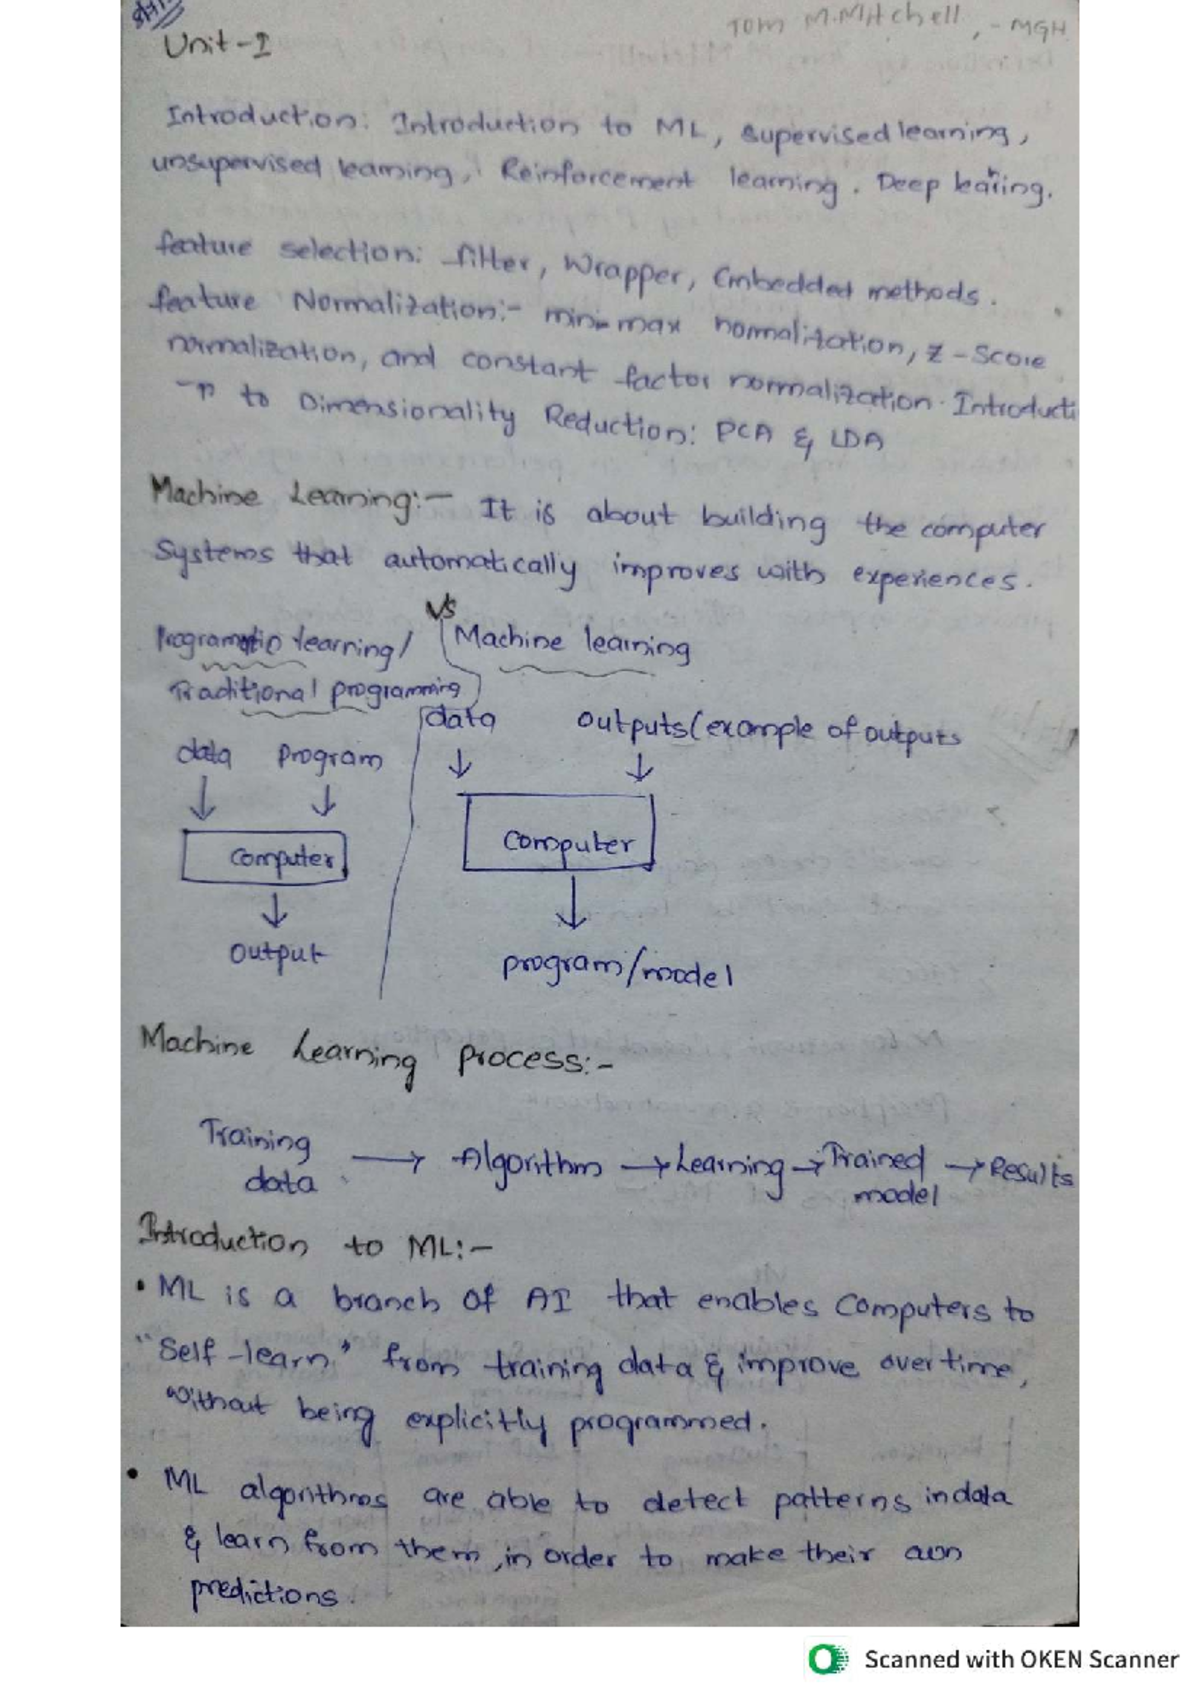 Unit-I
Tom M.Mitchell, - MGH
Introduction: Introduction to ML, supervised learning,
unsupervised learning, Reinforcement learning. Deep learning.
feature selection: filter, Wrapper, Embedded methods.
feature Normalization:- min-max normalization, Z-Score
normalization, and constant factor normalization. Introducti
-n to Dimensionality Reduction: PCA & LDA
Machine Learning:- It is about building the computer
Systems that automatically improves with experiences.
Programatic learning/ vs Machine learning
Traditional programming
data program
computer
output
data outputs(example of outputs
computer
program/model
Machine Learning process:-
Training data → Algorithm → Learning → Trained model → Results
Introduction to ML:-
• ML is a branch of AI that enables computers to
"Self-learn" from training data & improve over time,
without being explicitly programmed.
• ML algorithms are able to detect patterns in data
& learn from them, in order to make their own
predictions.
Scanned with OKEN Scanner